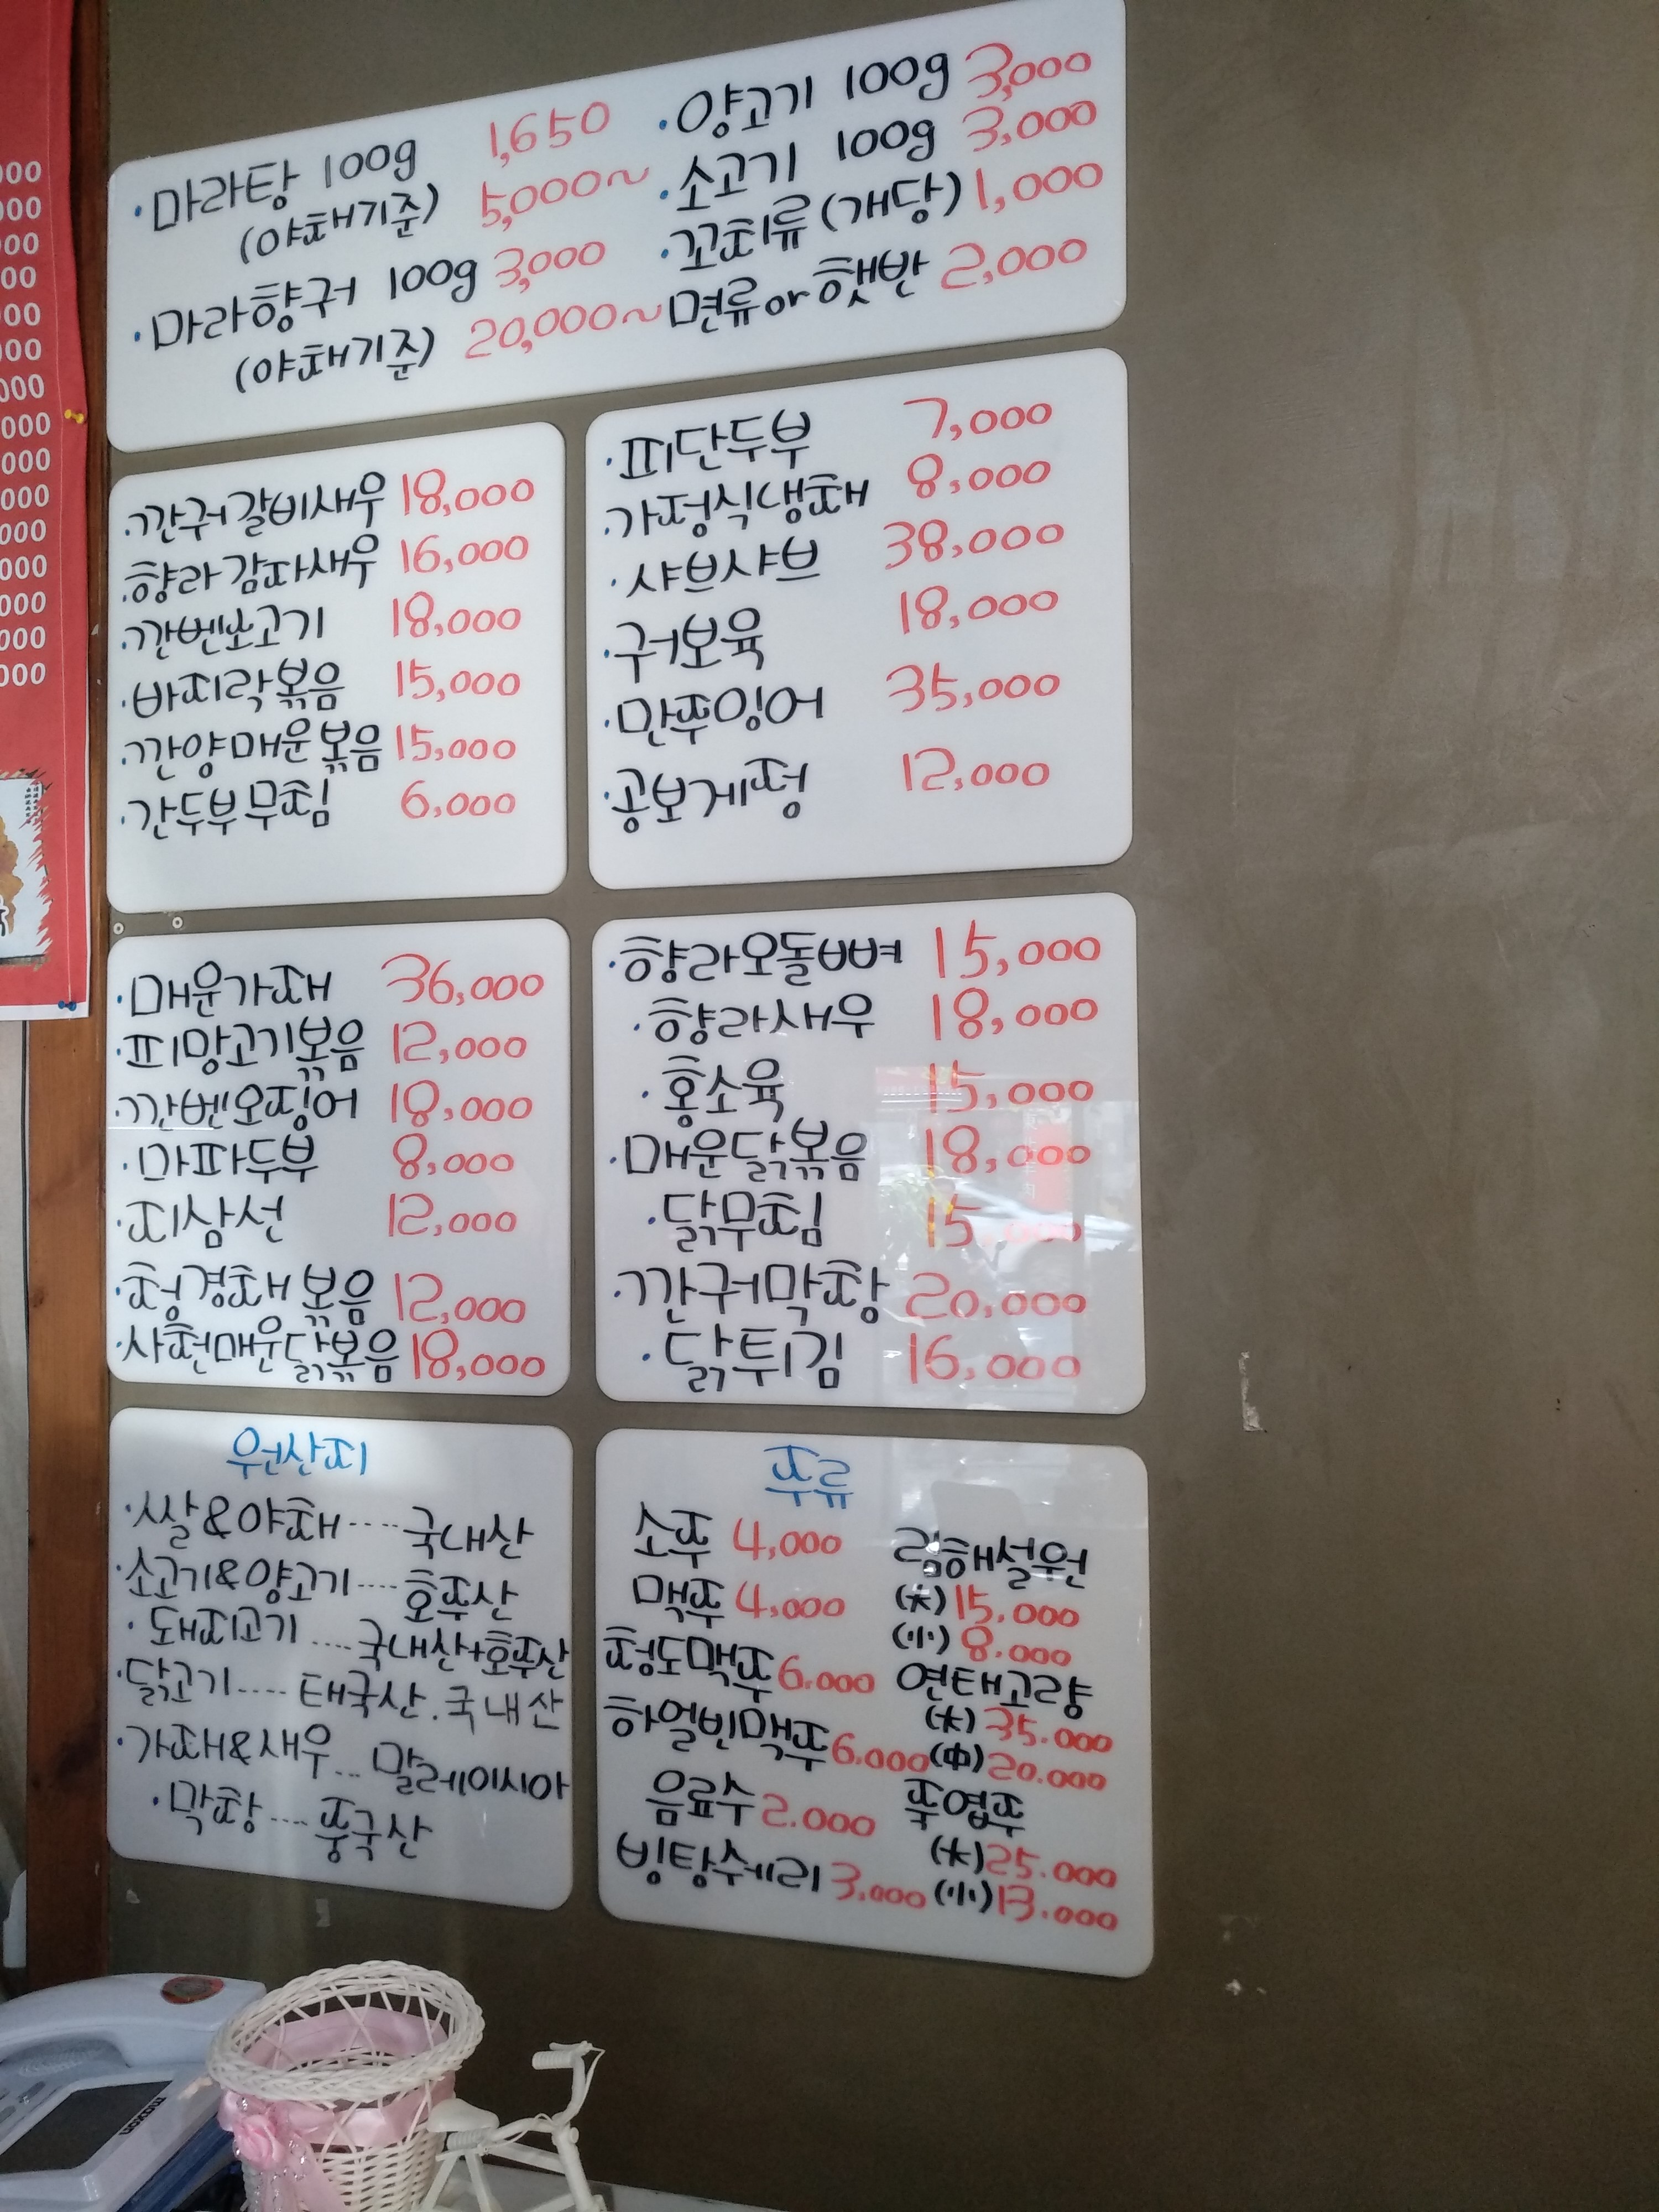 ·마라탕 100g 1,650
(야채기준) 5,000~
·마라향궈 100g 3,000
(야채기준) 20,000~
·양고기 100g 3,000
·소고기 100g 3,000
·꼬치류(개당) 1,000
면류or햇반 2,000
·깐궈갈비새우 18,000
·향라감자새우 16,000
·깐벤소고기 18,000
·바지락볶음 15,000
·깐양매운볶음 15,000
·간두부무침 6,000
·피단두부 7,000
·가정식냉채 8,000
·샤브샤브 38,000
·궈보육 18,000
·민주잉어 35,000
·공보계정 12,000
·매운가재 36,000
·피망고기볶음 12,000
·깐벤오징어 18,000
·마파두부 8,000
·지삼선 12,000
·청경채볶음 12,000
·사천매운닭볶음 18,000
·향라오돌뼈 15,000
·향라새우 18,000
·홍소육 15,000
·매운닭볶음 18,000
·닭무침 15,000
·깐궈막창 20,000
·닭튀김 16,000
원산지
·쌀&야채----국내산
·소고기&양고기----호주산
·돼지고기....국내산+호주산
·닭고기----태국산.국내산
·가재&새우...말레이시아
·막창----중국산
주류
소주 4,000
맥주 4,000
청도맥주 6.000
하얼빈맥주 6.000
음료수 2.000
빙탕쉐리 3.000
림해설원
(大) 15.000
(小) 8.000
연태고량
(大) 35.000
(中) 20.000
죽엽주
(大) 25.000
(小) 13.000
maxon